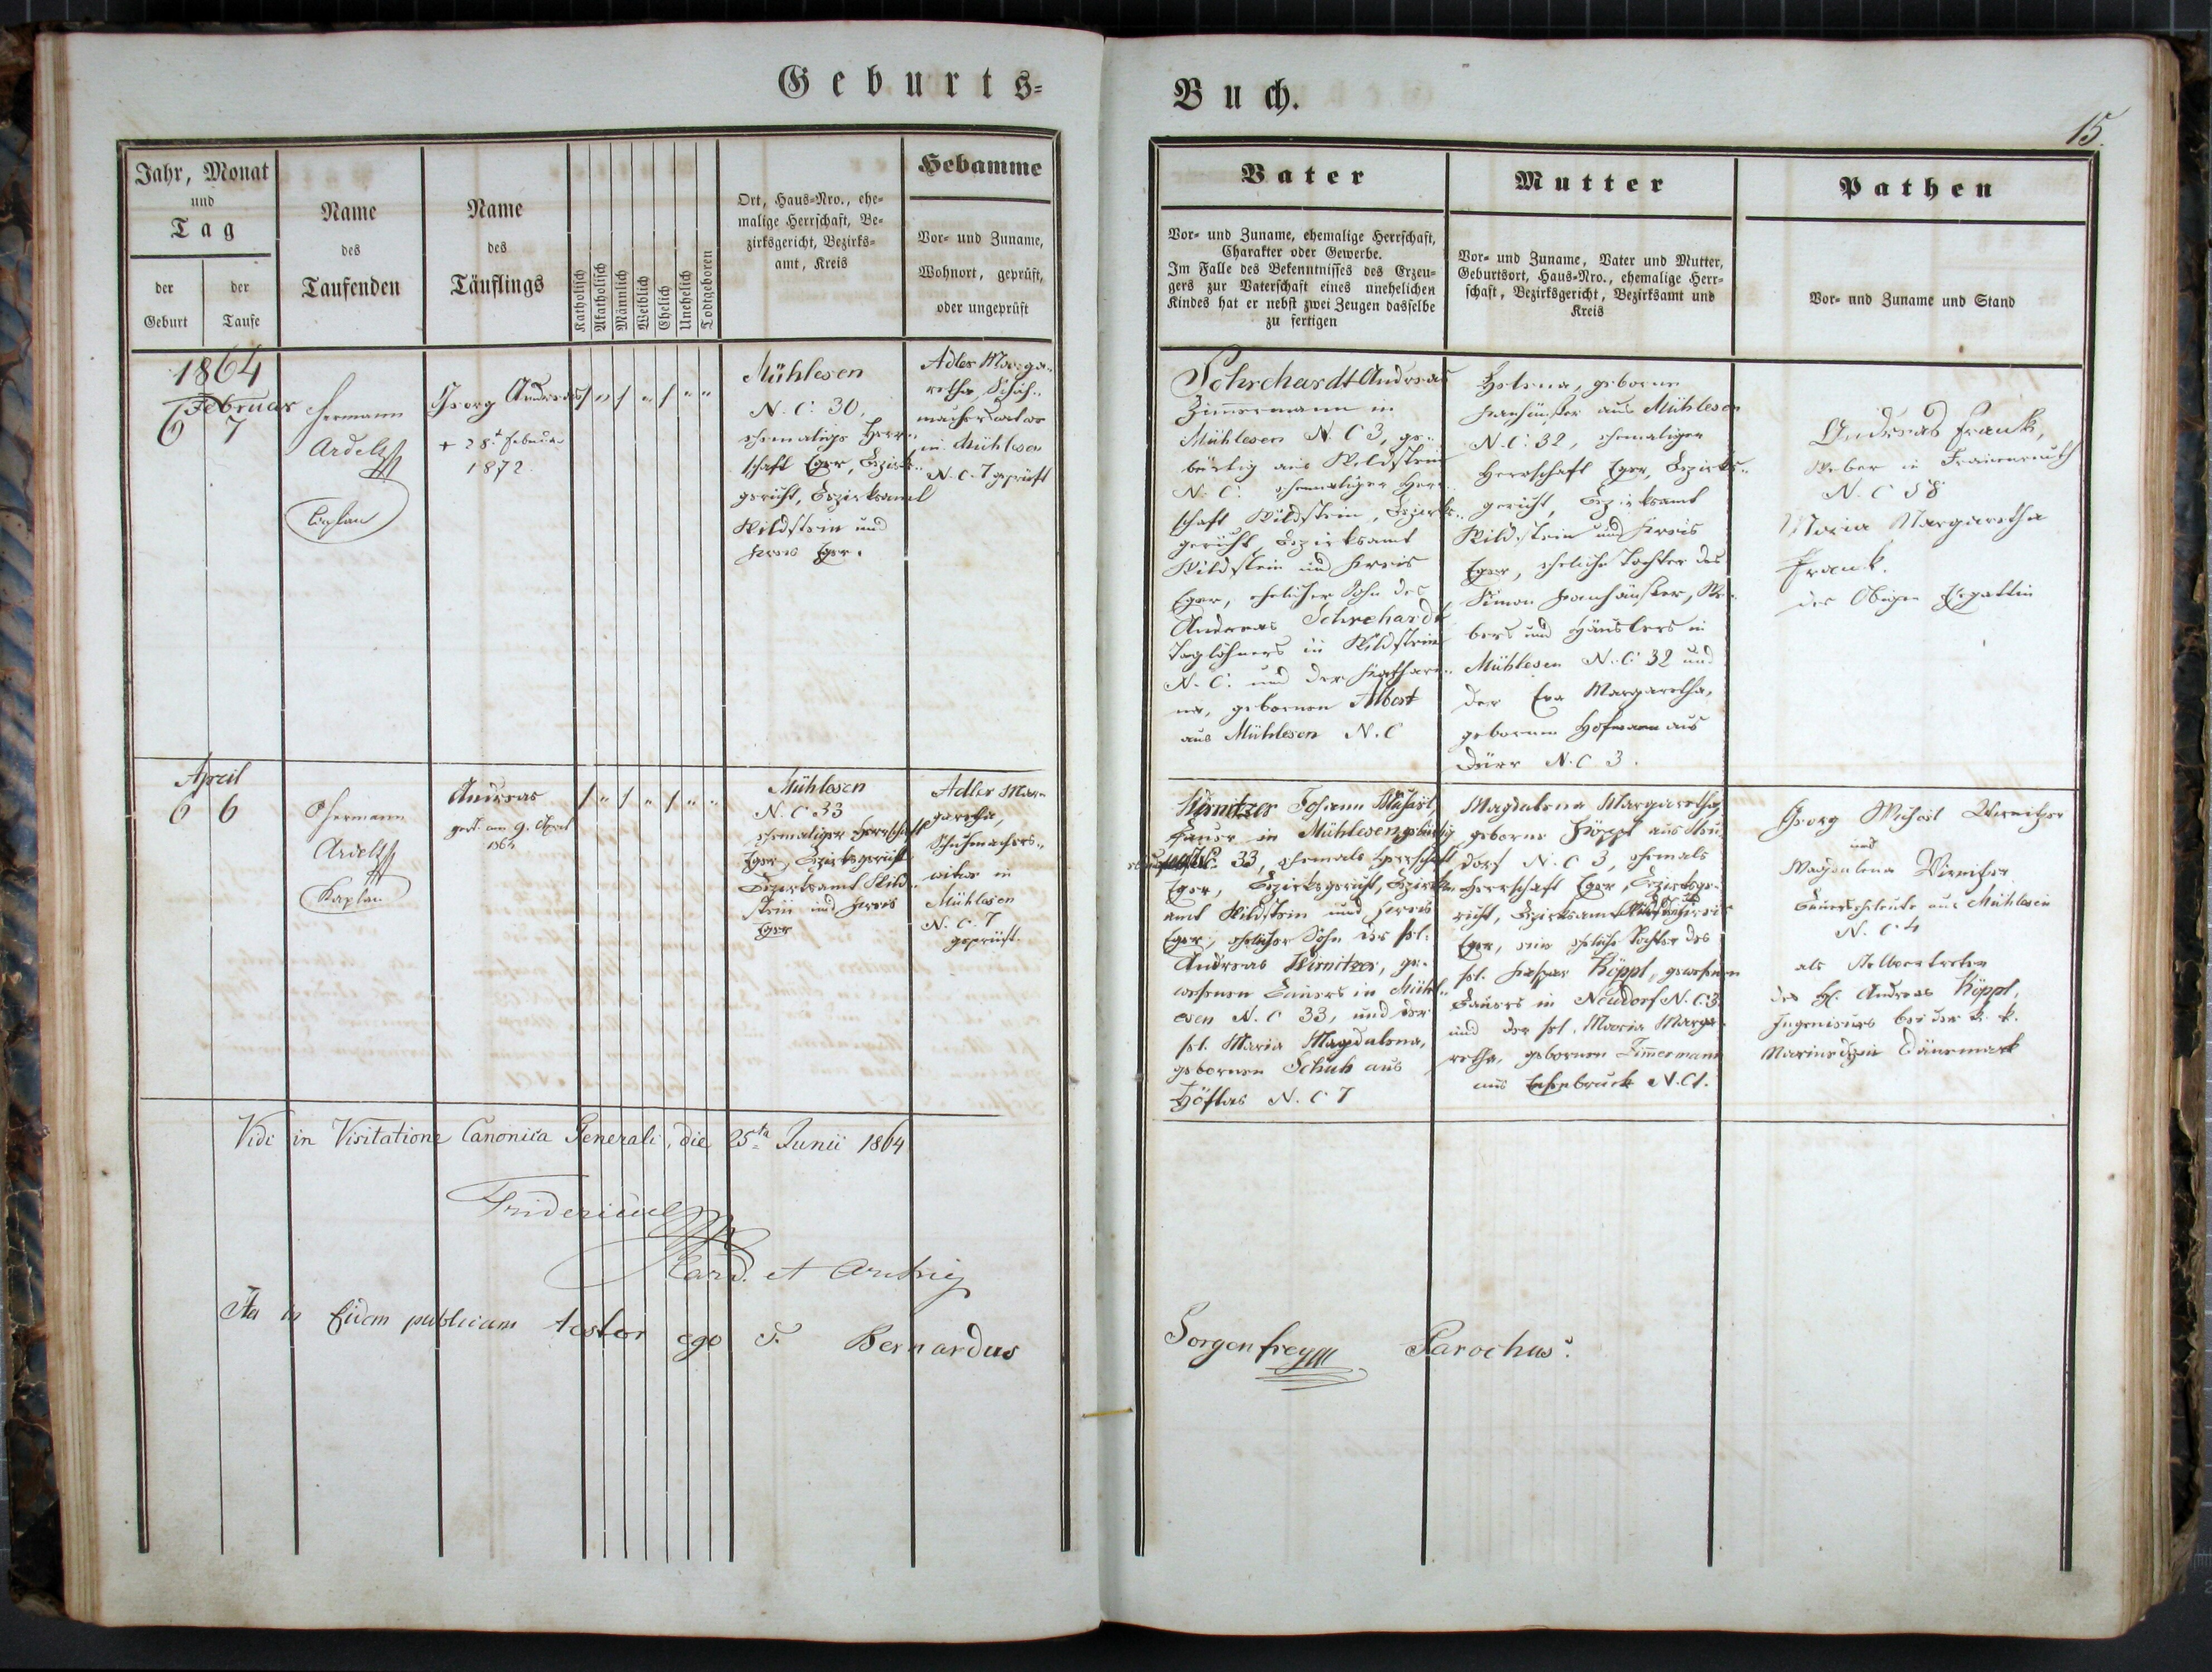 Geburts-
Buch.
15.
Jahr, Monat
und
Tag
der
Geburt
der
Taufe
Name
des
Taufenden
Name
des
Täuflings
Katholisch
Akatholisch
Männlich
Weiblich
Ehelich
Unehelich
Todtgeboren
Ort, Haus-Nro., ehe-
malige Herrschaft, Be-
zirksgericht, Bezirks-
amt, Kreis
Hebamme
Vor- und Zuname,
Wohnort, geprüft,
oder ungeprüft
Vater
Vor- und Zuname, ehemalige Herrschaft,
Charakter oder Gewerbe.
Im Falle des Bekenntnisses des Erzeu-
gers zur Vaterschaft eines unehelichen
Kindes hat er nebst zwei Zeugen dasselbe
zu fertigen
Mutter
Vor- und Zuname, Vater und Mutter,
Geburtsort, Haus-Nro., ehemalige Herr-
schaft, Bezirksgericht, Bezirksamt und
Kreis
Pathen
Vor- und Zuname und Stand
1864
Februar
6 7
Hermann
Ardelt
Caplan
Georg Andreas
+ 28t Februar
1872.
1 " 1 " 1 " "
Mühlesen
N. C. 30,
ehemalige Herr-
schaft Eger, Bezirks-
gericht, Bezirksamt
Wildstein und
Kreis Eger.
Adler Marga-
retha, Schuh-
macherswitwe
in Mühlesen
N. C. 7 geprüft
Schrehardt Andreas
Zimmermann in
Mühlesen N. C 3, ge-
bürtig aus Wildstein
N. C. ehemaliger Herr-
schaft Wildstein, Bezirks-
gericht, Bezirksamt
Wildstein und Kreis
Eger, ehelicher Sohn des
Andreas Schrehardt
Taglöhners in Wildstein
N. C. und der Kathari-
na, gebornen Albert
aus Mühlesen N. C
Helena, geborne
aus Mühlesen
N. C. 32, ehemaliger
Herrschaft Eger, Bezirks-
gericht, Bezirksamt
Wildstein und Kreis
Eger, eheliche Tochter des
Simon We-
bers und Häuslers in
Mühlesen N. C. 32 und
der Eva Margaretha,
gebornen Hofmann aus
Dürr N. C 3.
Andreas Frank,
Weber in Frauenreuth
N. C 58
Maria Margaretha
Frank.
des Obigen Ehegattin
April
6 6
Hermann
Ardelt
Kaplan
Andreas
gest. am 9. April
1864
1 " 1 " 1 " "
Mühlesen
N. C 33
ehemaliger Herrschaft
Eger, Bezirksgericht
Bezirksamt Wild-
stein und Kreis
Eger
Adler Mar-
garetha,
Schuhmachers-
witwe in
Mühlesen
N. C. 7
geprüft.
Wirnitzer Johann Michael,
Bauer in Mühlesen gebürtig
33, ehemals Herrschaft
Eger, Bezirksgericht, Bezirks-
amt Wildstein und Kreis
Eger, ehelicher Sohn des sel.
Andreas Wirnitzer, ge-
wesenen Bauers in Mühl-
esen N. C 33, und der
sel. Maria Magdalena,
gebornen Schuh aus
Höflas N. C 7
Magdalena Margaretha,
geborne Köppl aus Neu-
dorf N. C 3, ehemals
Herrschaft Eger, Bezirksge-
richt, Bezirksamt Wildstein Kreis
Eger, eine eheliche Tochter des
sel. Kaspar Köppl, gewesenen
Bauers in Neudorf N. C. 3
und der sel. Maria Marga-
retha, gebornen Zimmermann
aus Ensenbruck N. C 1.
Georg Michael Wirnitzer
und
Magdalena Wirnitzer
Bauerseheleute aus Mühlesen
N. C 4
als Stellvertreter
des H. Andreas Köppl,
Ingenieurs bei der k. k.
Marine Dänemark
Vidi in Visitatione Canonica Generali, die 25ta Junii 1864
Fridericus
Card. et
Ita in fidem publicam testor ego F. Bernardus Sorgenfrey Parochus.